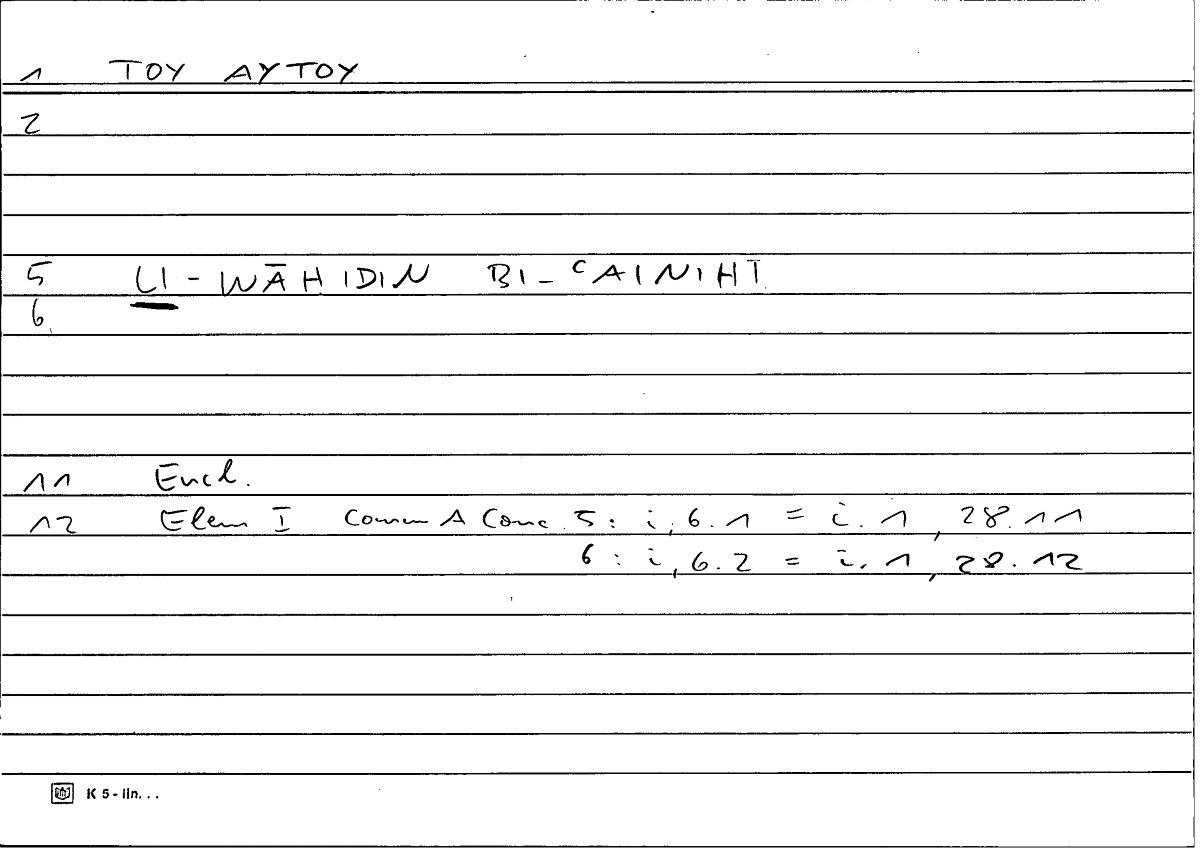 1 ΤΟΥ ΑΥΤΟΥ
2
5 LI-WĀHIDIN BI-ʿAINIHĪ
6
11 Eucl.
12 Elem I Comm A Conc. 5: i, 6.1 = i. 1, 28.11
6: i, 6.2 = i. 1, 28.12
K 5-lin...